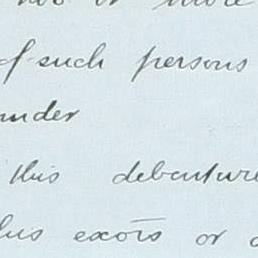 or more
of such persons
under
this debenture
his exōrs or